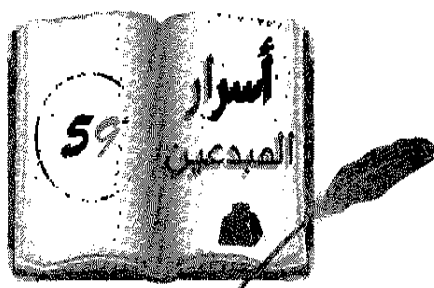 أسرار
المبدعين
59